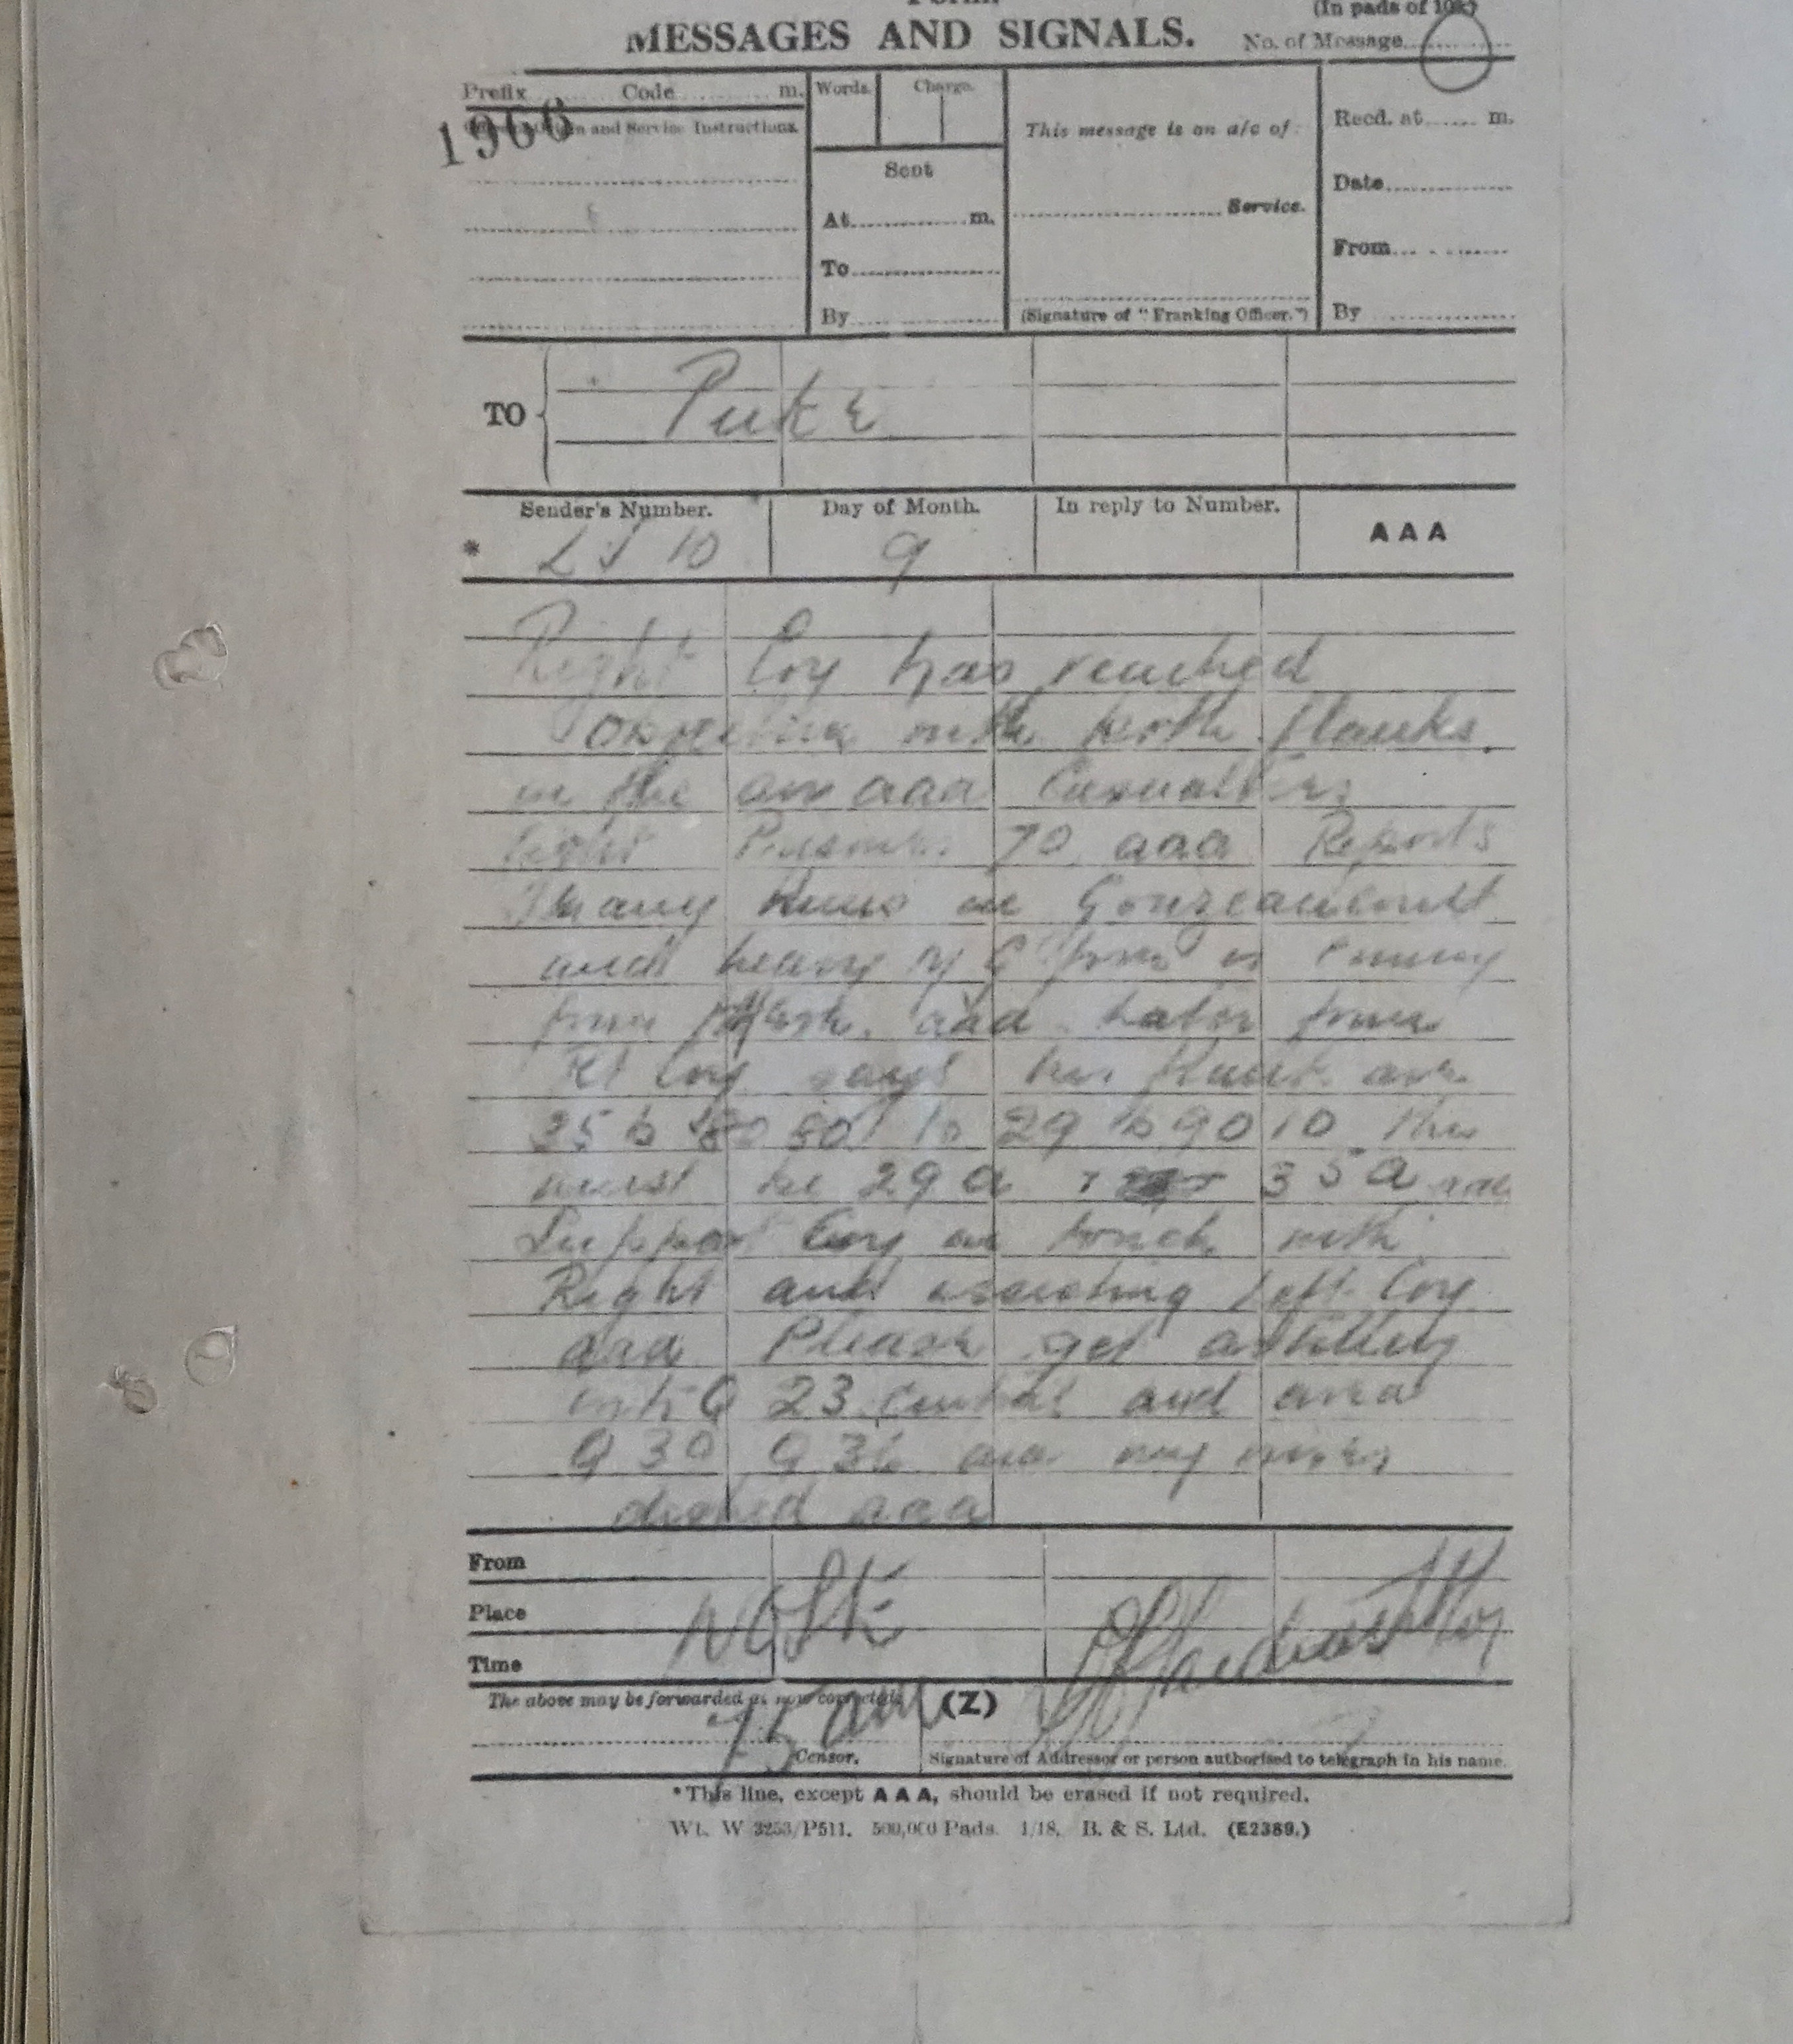 (In pads of 100.)
MESSAGES AND SIGNALS. No. of Message
Prefix Code m. Words. Charge.
1966
and Service Instructions.
This message is on a/c of:
Recd. at m.
Sent
Date
At m.
Service.
From
To
By
(Signature of "Franking Officer.")
By
TO
Sender's Number. Day of Month. In reply to Number. AAA
* 10 9
Right Coy has reached
objective with both flanks
in the air aaa Casualties
light Prisoners 70 aaa Reports
Many Huns in Gonzeaucourt
and heavy M G from
from aaa Later from
Rt Coy says his flanks are
35 b 80 80 to 29 b 90 10 this
must be 29 a 35 a aaa
Support Coy in touch with
Right and assisting left Coy
aaa Please get artillery
onto Q 23 central and area
Q 30 Q 36 any
aaa
From
Place
Time
The above may be forwarded as now corrected. (Z)
am
Censor. Signature of Addressor or person authorised to telegraph in his name.
*This line, except AAA, should be erased if not required.
Wt. W 3253/P511. 500,000 Pads. 1/18. B. & S. Ltd. (E2389.)